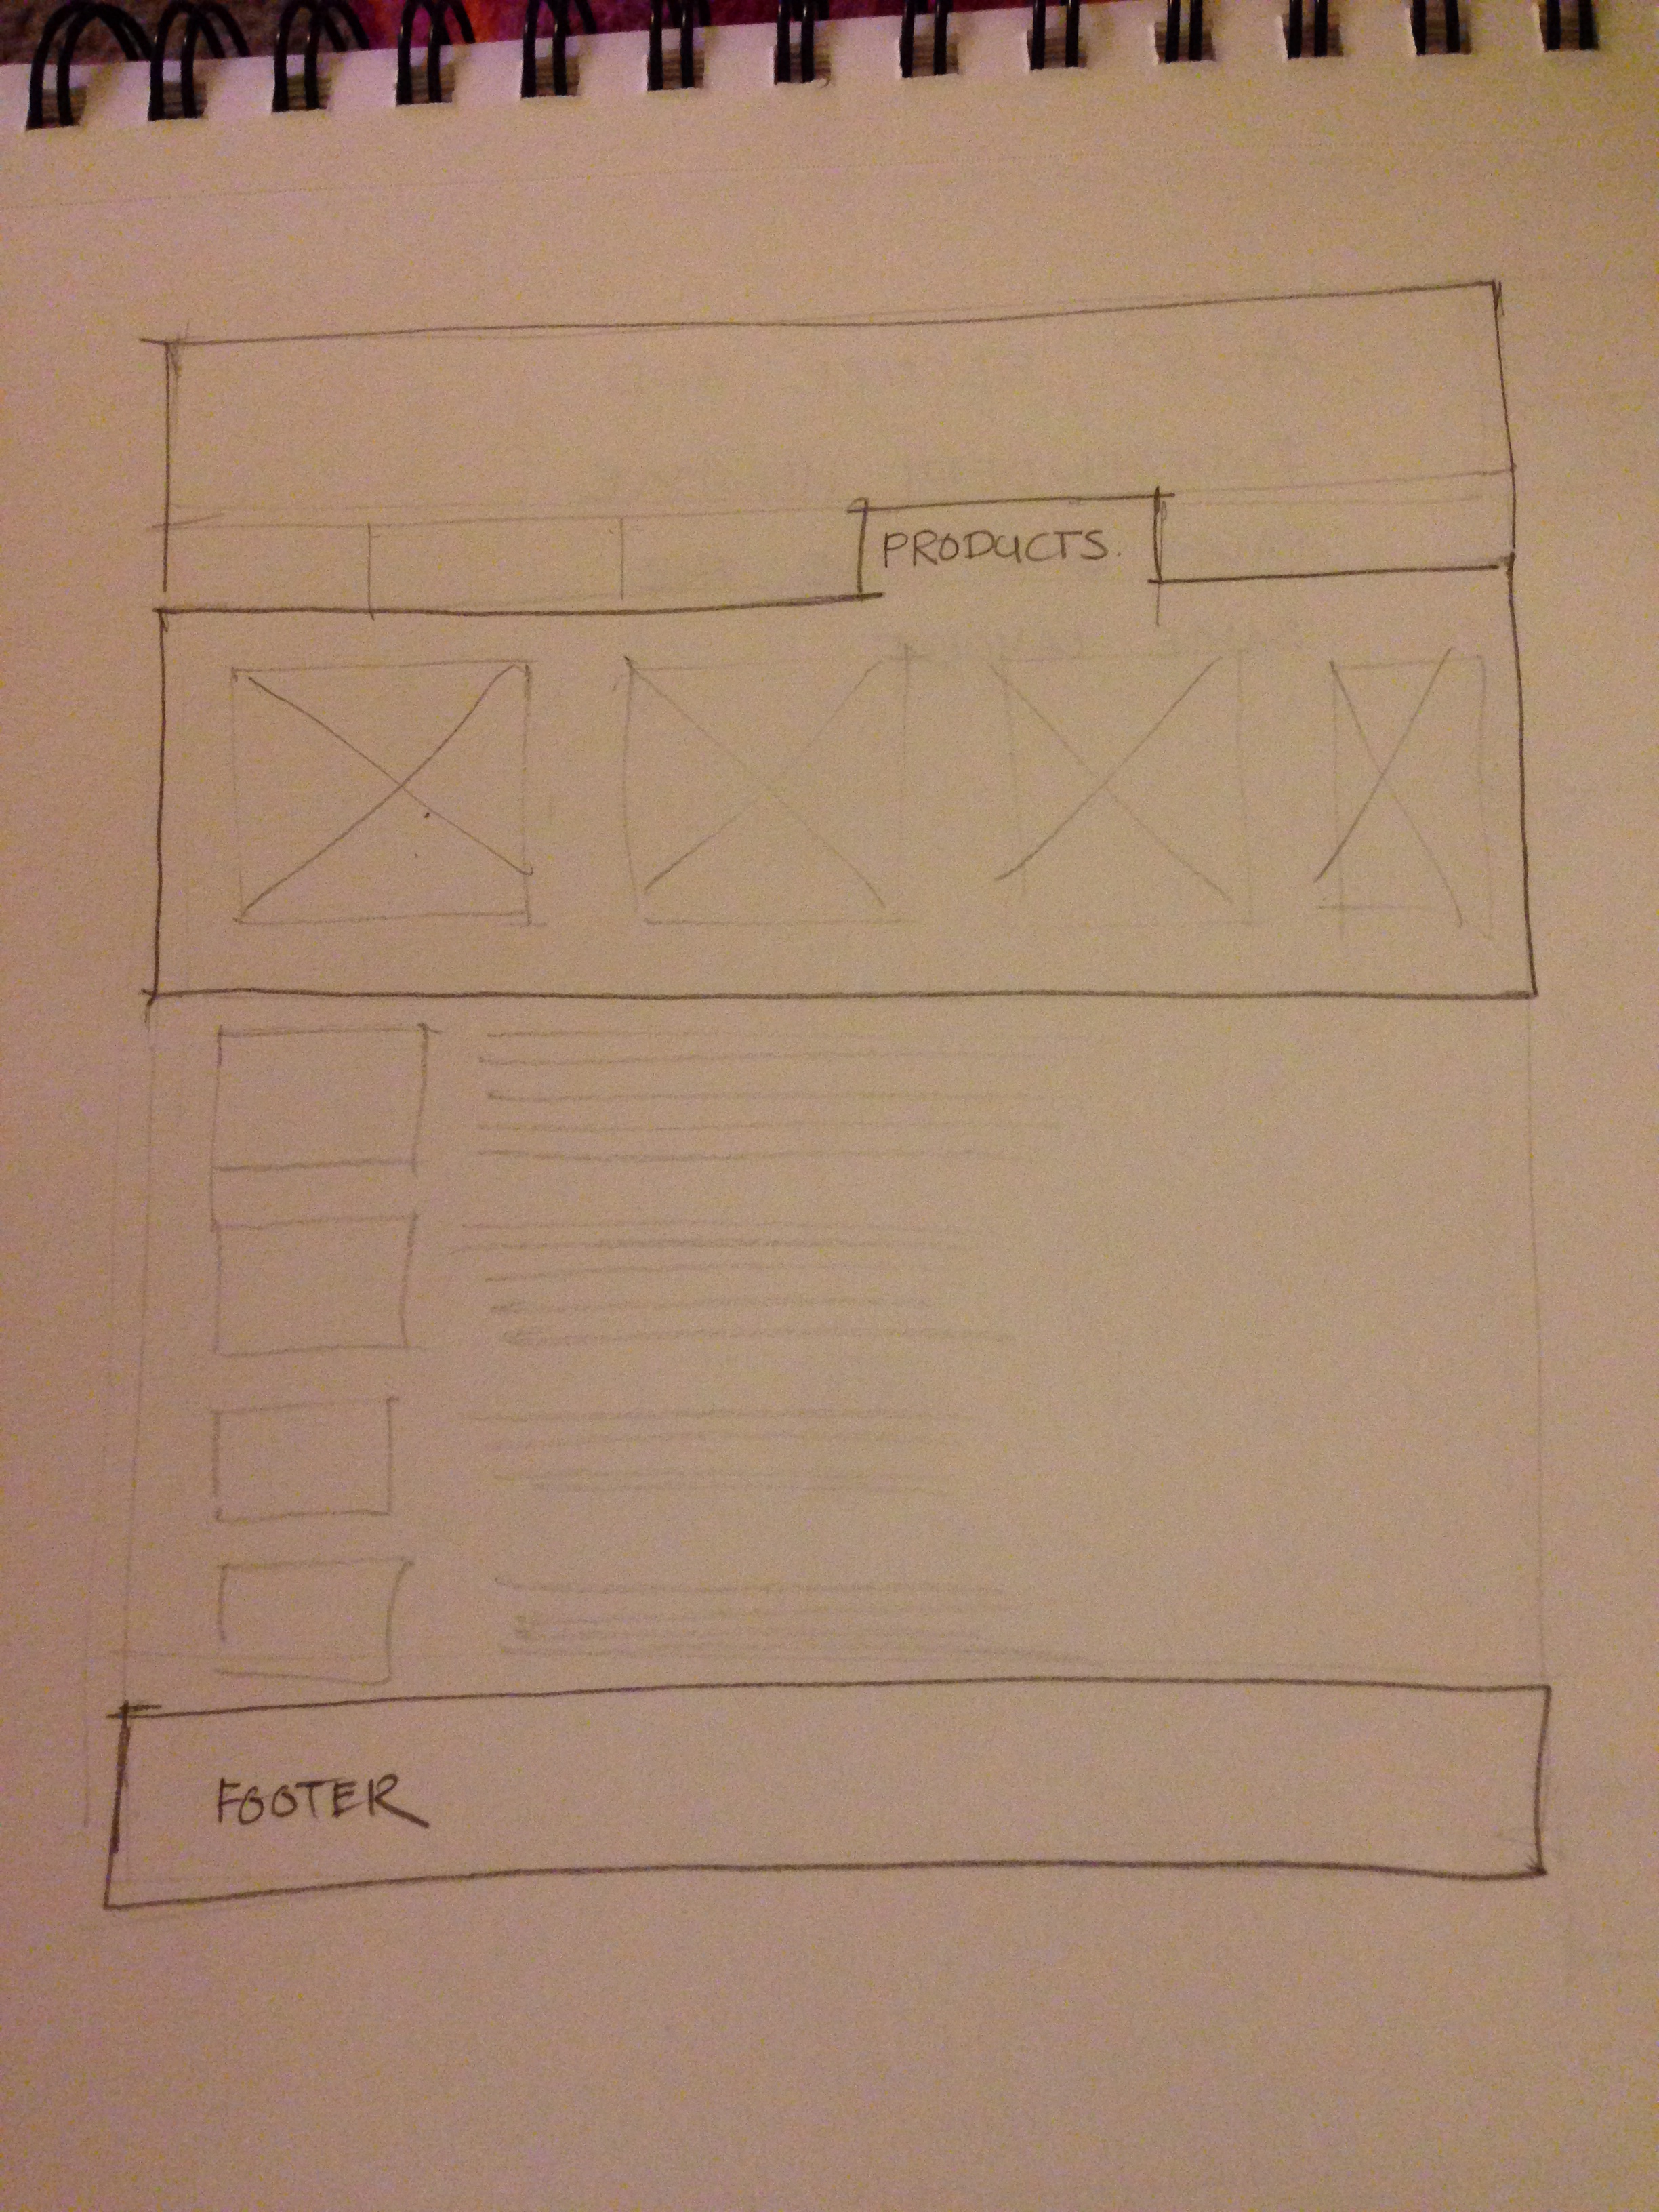 PRODUCTS.
FOOTER